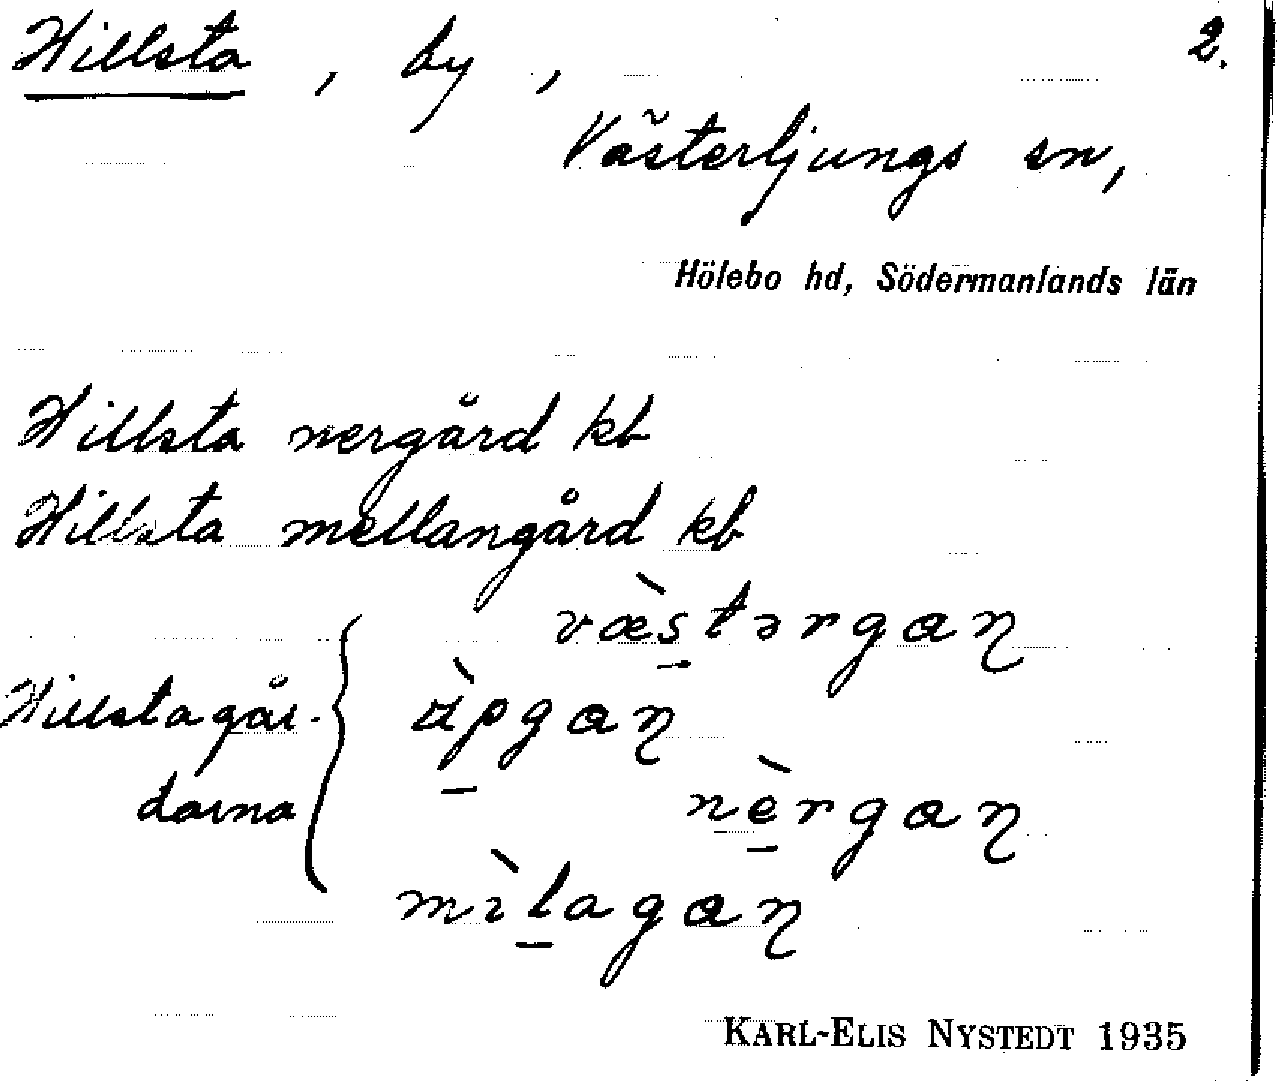 Hillsta, by, 2.
Västerljungs sn,
Hölebo hd, Södermanlands län
Hillsta nergård kb
Hillsta mellangård kb
væ̀s̲tərgaɳ
Hillstagår-
darna
nè̲rgaɳ
mɪ̀l̲agaɳ
KARL-ELIS NYSTEDT 1935